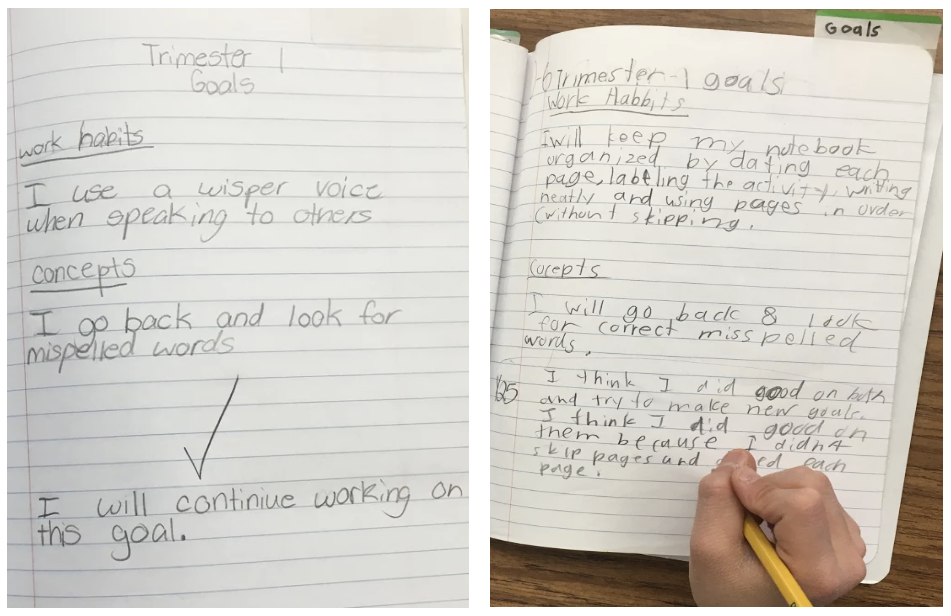 Trimester 1
Goals
work habits
I use a wisper voice
when speaking to others
concepts
I go back and look for
mispelled words
I will continiue working on
this goal.
Goals
Trimester-1 goals
Work Habbits
I will keep my notebook
organized by dating each
page, labeling the activity, writing
neatly and using pages in order
(without skipping.
Corepts
I will go back & look
for correct misspelled
words.
I think I did good on both
and try to make new goals.
I think I did good on
them because I didn't
skip pages and each
page.